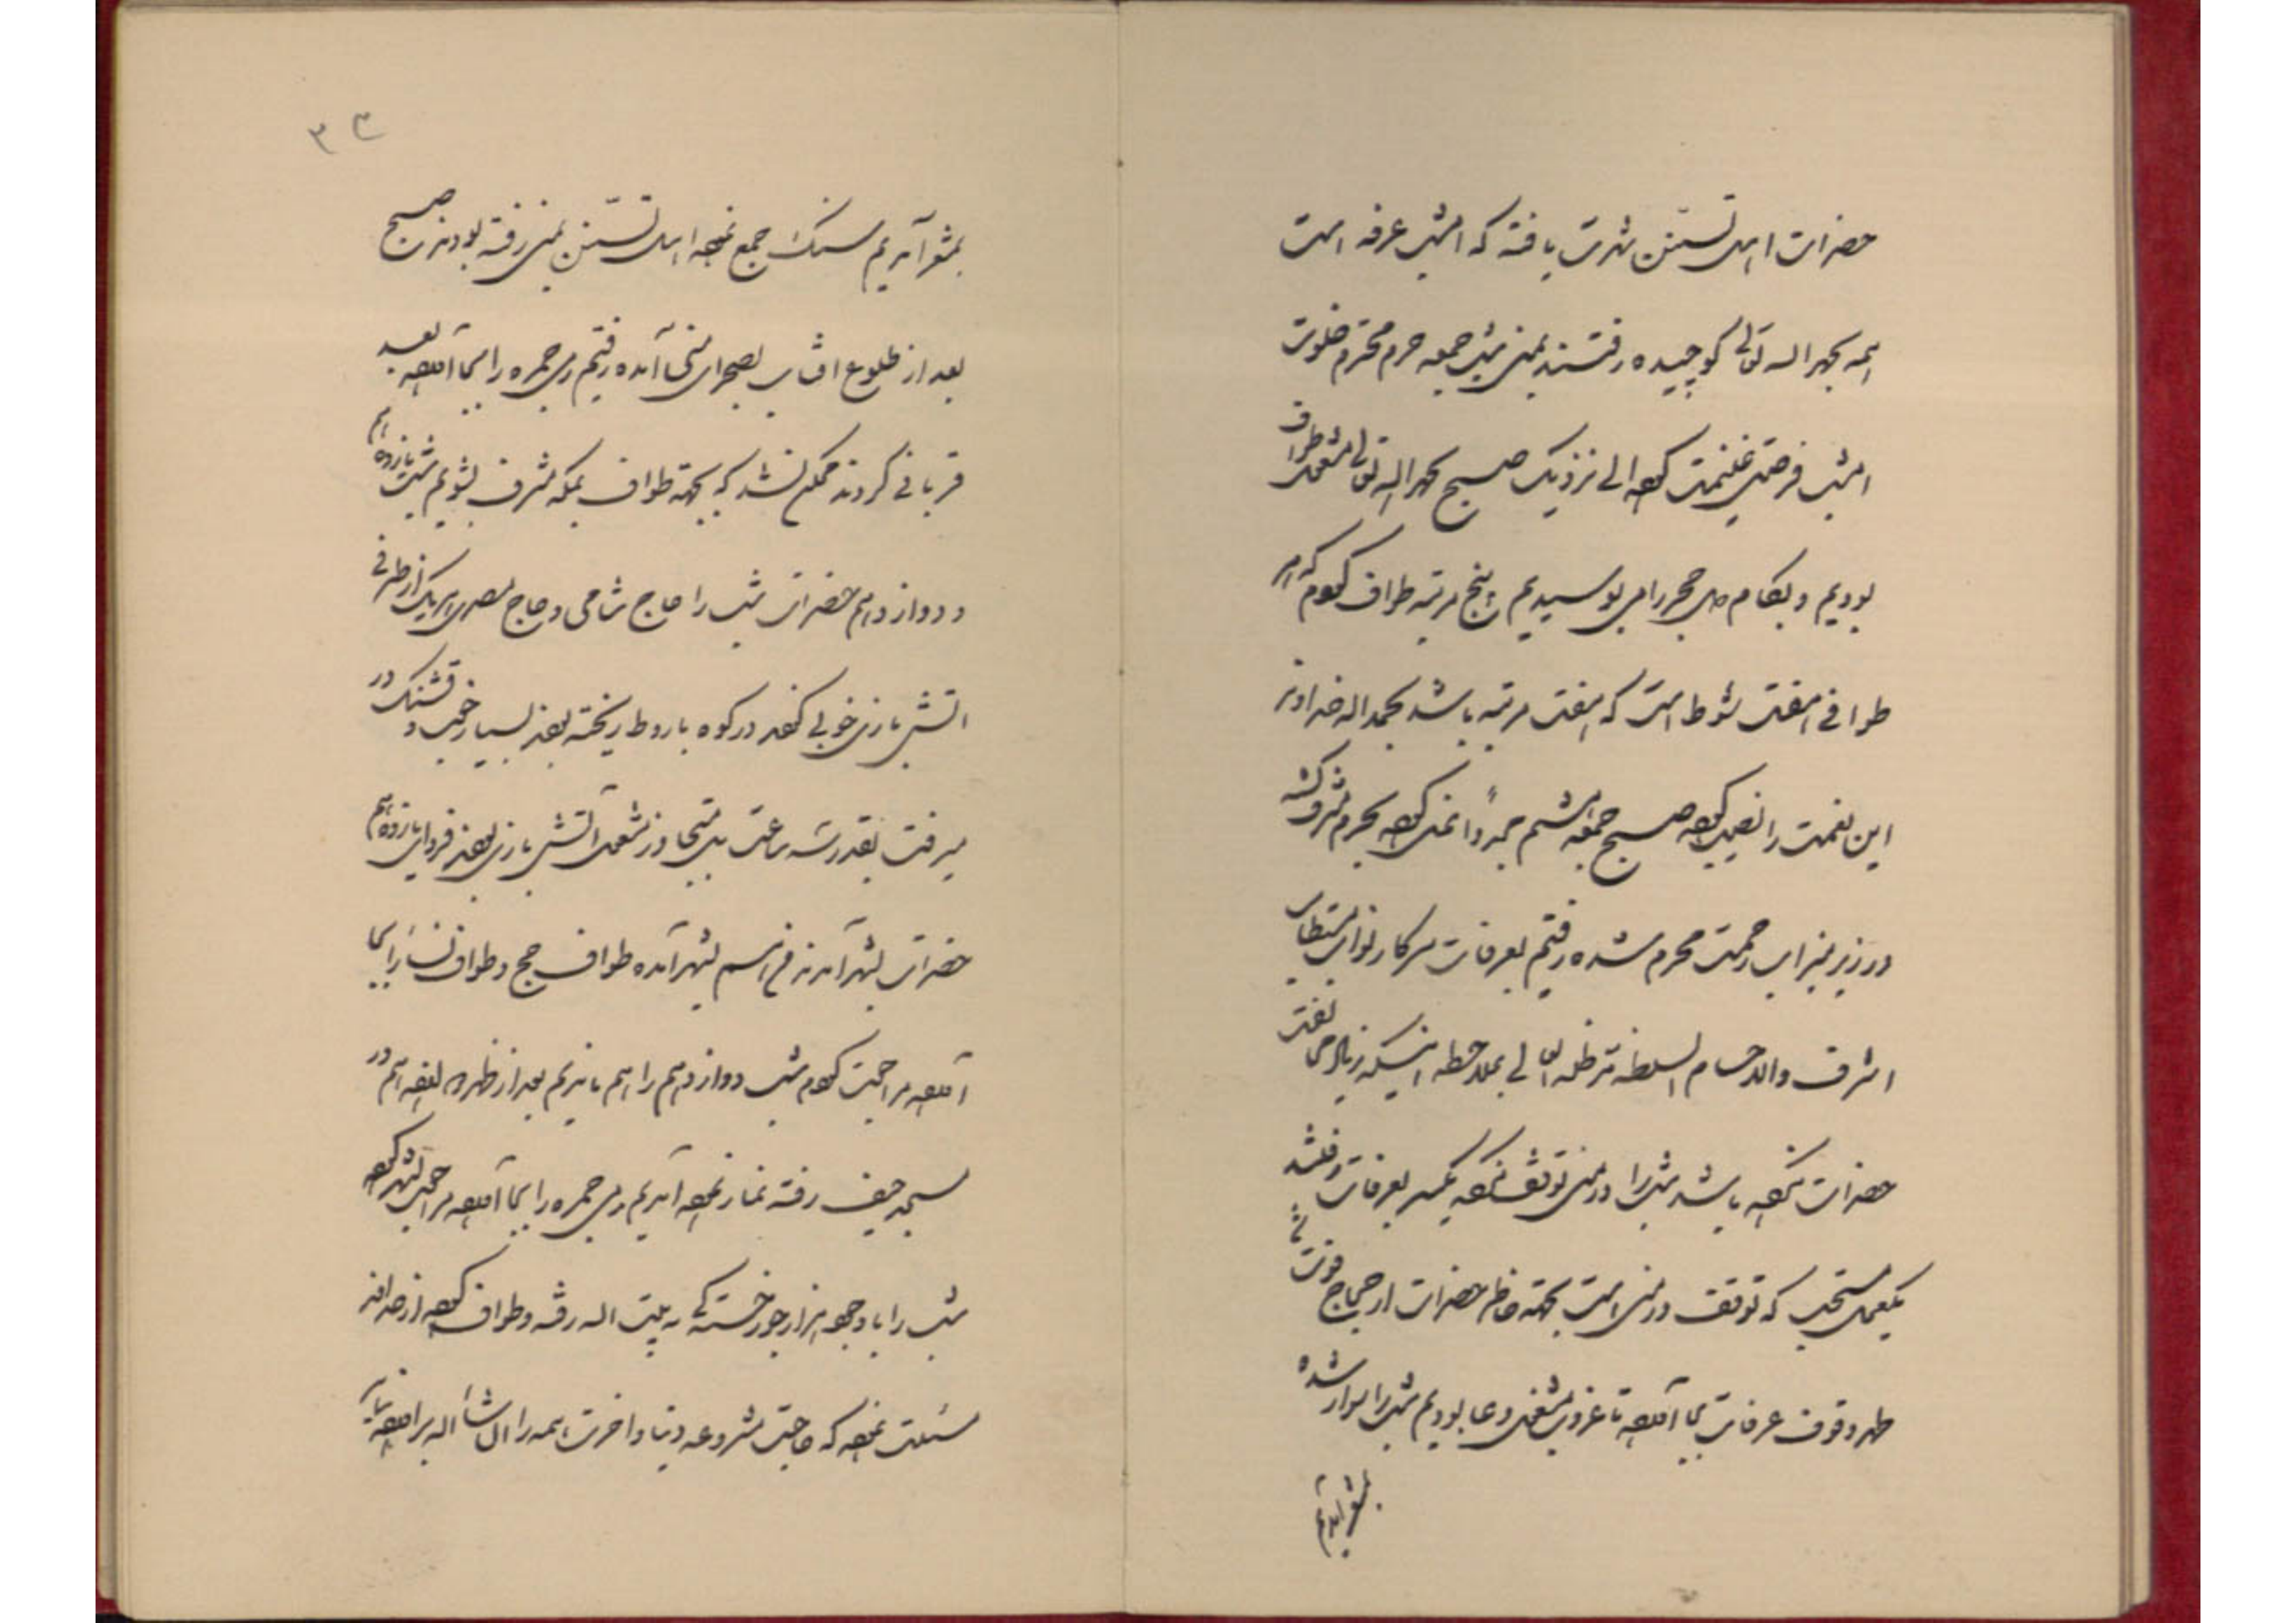 حضرات اهل تسنن شهرت یافته که امشب عرفه است
همه بحمد الله تعالی کوچیده رفتند بمنی شب جمعه حرم محترم خلوت
امشب فرصت غنیمت کرده الی نزدیک صبح بحمد الله تعالی مشغول طواف
بودیم و بکام دل حجر را می بوسیدیم پنج مرتبه طواف کردم که هر
طوافی هفت شوط است که هفت مرتبه باشد بحمد الله خداوند
این نعمت را نصیب کرده صبح جمعه هشتم مجدداً غسل کرده بحرم مشرف گشته
در زیر میزاب رحمت محرم شده رفتیم بعرفات سرکار نواب مستطاب
اشرف والا حسام السلطنه مدظله العالی بملاحظه اینکه زیاد مخالفت
حضرات نکرده باشد شب را در منی توقف نکرده یکسر بعرفات رفتند
یک عمل مستحب که توقف در منی است بجهته خاطر حضرات از حجاج فوت شد
ظهر وقوف عرفات بجا آورده تا غروب مشغول دعا بودیم شب را سوار شده
بمشعر آمدیم
۳۳
بمشعر آمدیم سنگ جمع نموده اهل تسنن بمنی رفته بودند صبح
بعد از طلوع افتاب بصحرای منی آمده رفتیم رمی جمره را بجا آورده بعد
قربانی کردند ممکن نشد که بجهته طواف بمکه مشرف بشویم شب یازدهم
و دوازدهم حضرات شب را حاج شامی و حاج مصری هر یک از طرفی
اتش بازی خوبی کردند در کوه باروط ریخته بودند بسیار خوب و قشنگ در
میرفت بقدر سه ساعت بل متجاوز مشغول آتش بازی بودند فردای یازدهم
حضرات بشهر آمدند من هم بشهر آمده طواف حج و طواف نسا را بجا
آورده مراجعت کردم شب دوازدهم را هم ماندیم بعد از ظهر دوازدهم در
مسجد خیف رفته نماز نموده آمدیم رمی جمره را بجا آورده مراجعت بشهر کرده
شب را با وجود هزار جور خستگی به بیت الله رفته و طواف کرده از خداوند
مسئلت نموده که حاجت مشروعه دنیا و اخرت همه را انشاء الله برآورده نماید